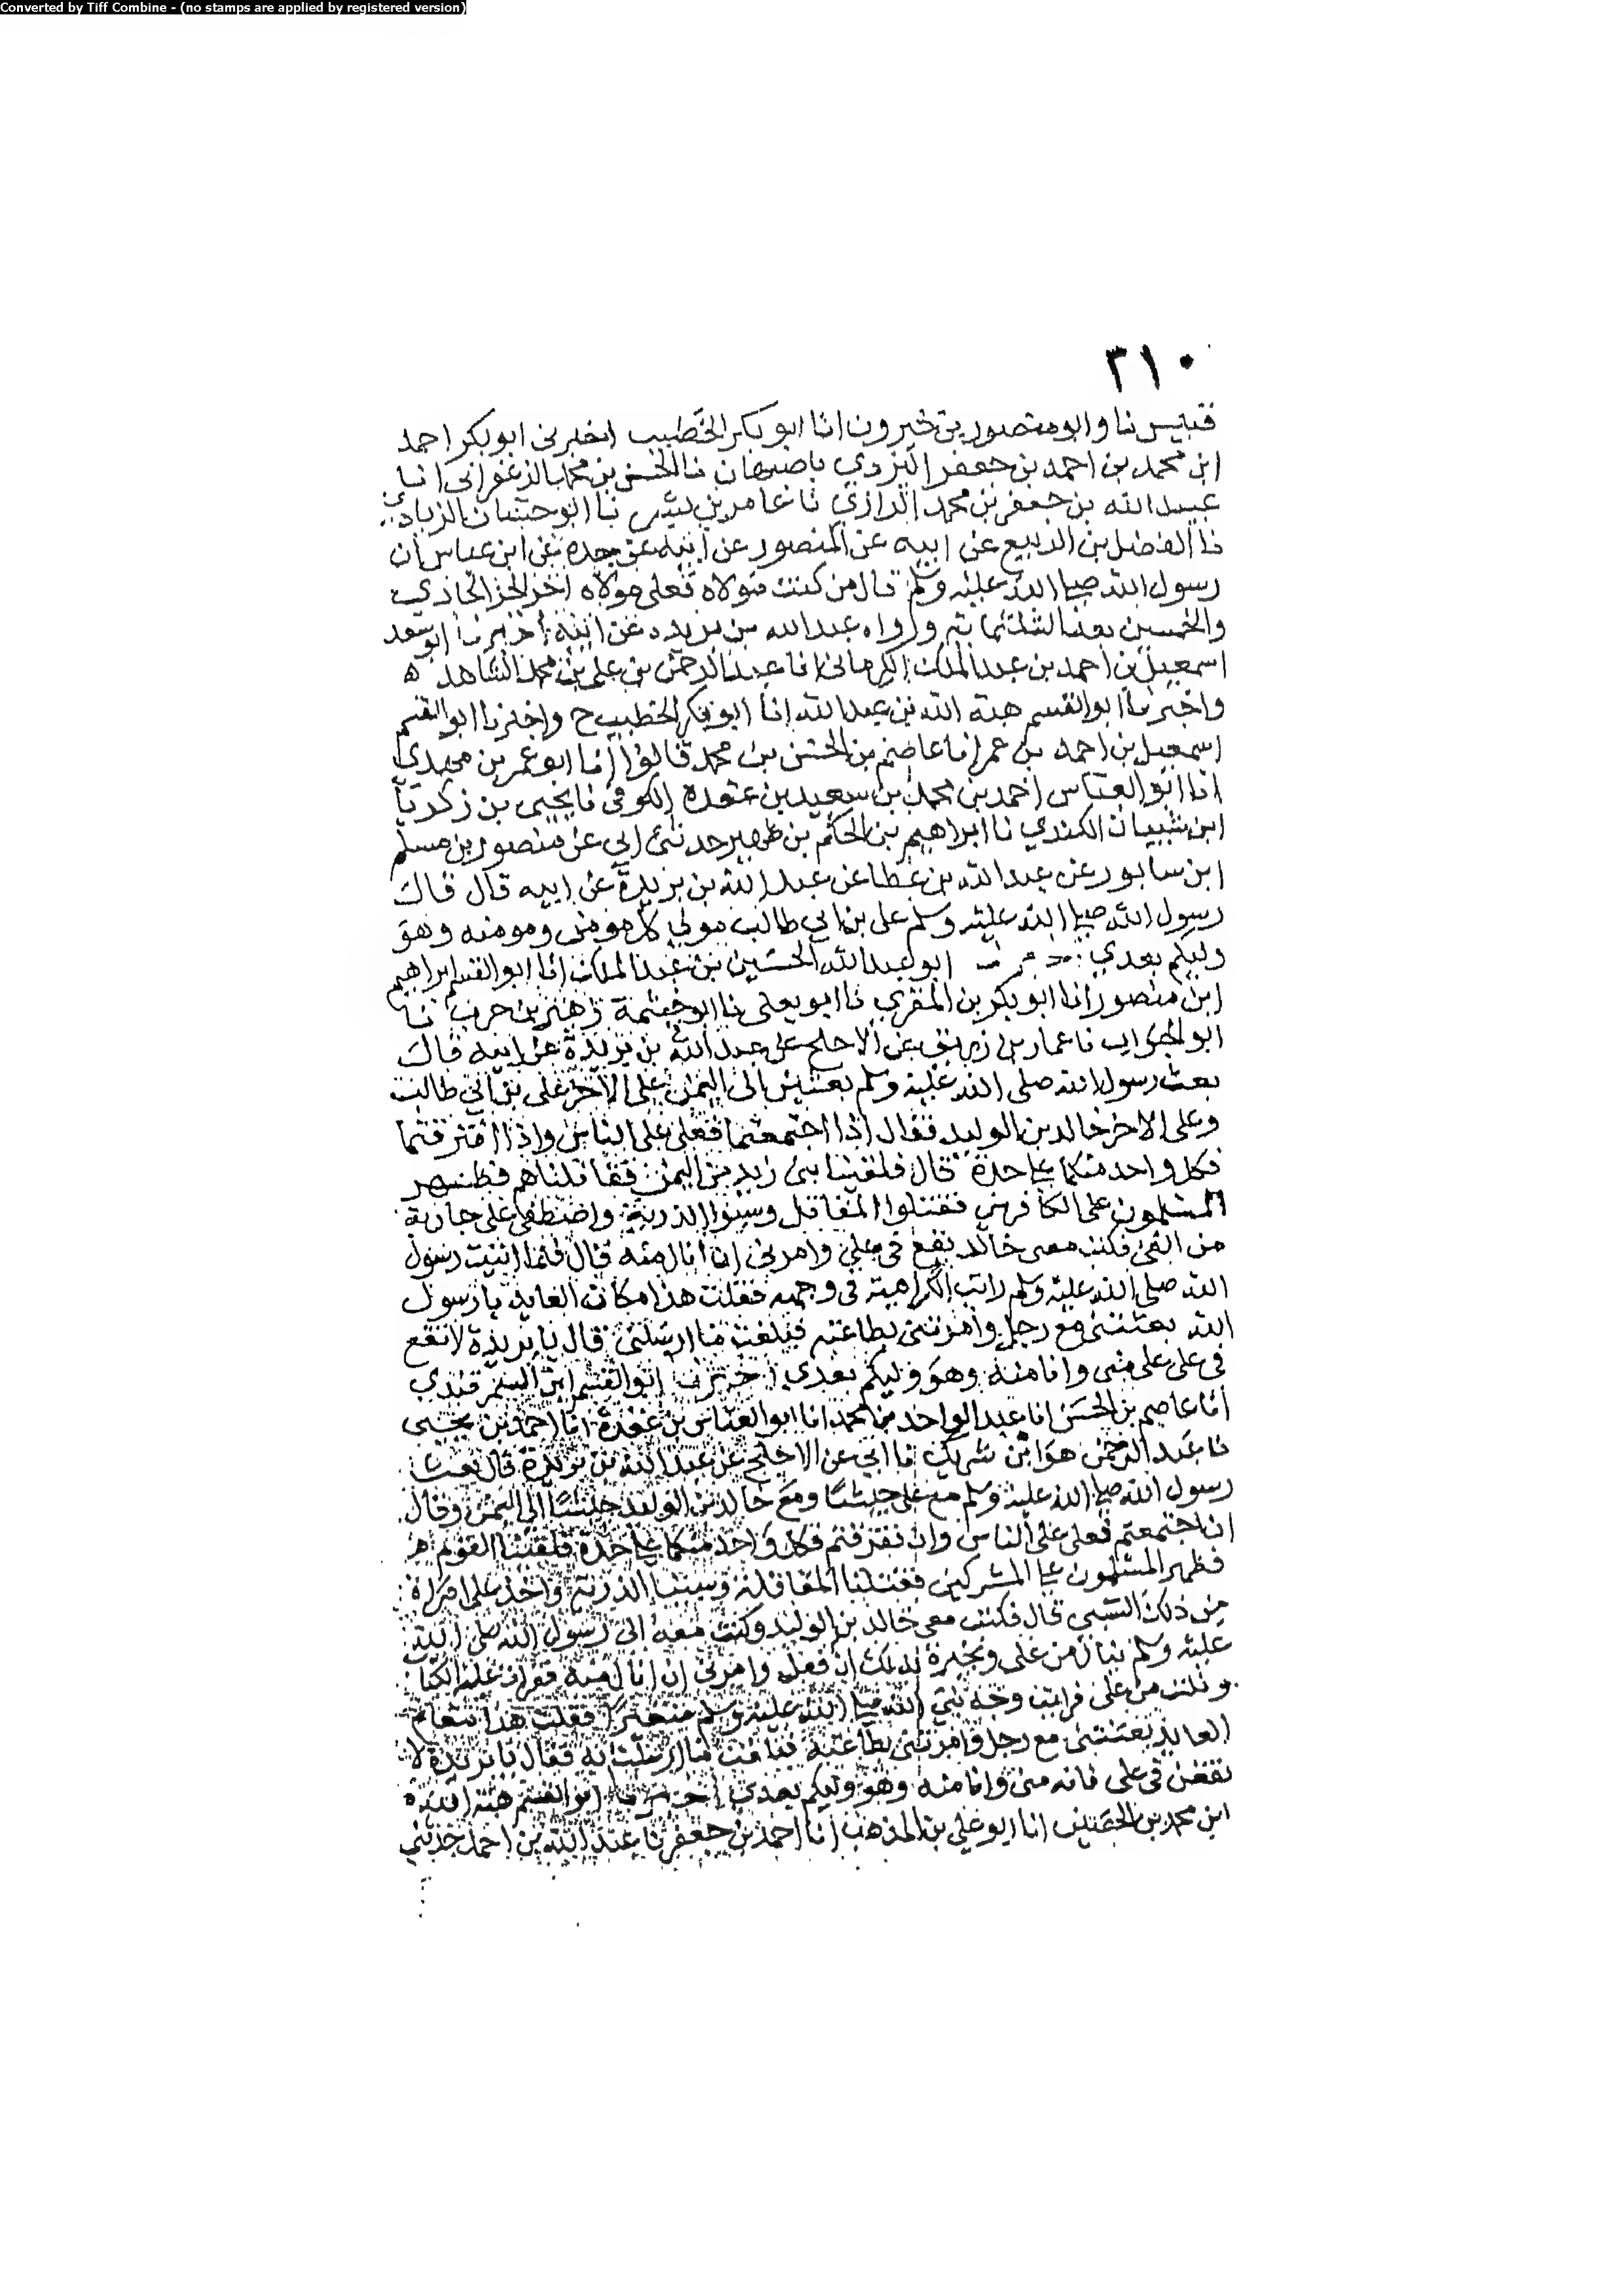 Converted by Tiff Combine - (no stamps are applied by registered version)
٣١٠
قبيس نا وابو منصور بن خيرون انا ابو بكر الخطيب اخبرني ابو بكر احمد
ابن محمد بن احمد بن جعفر اليزدي باصبهان نا الحسن بن محمد الزعفراني انا
عبيد الله بن جعفر بن محمد الرازي نا عامر بن بشر نا ابو حسان الزيادي
نا الفضل بن الربيع عن ابيه عن المنصور عن ابيه عن جده عن ابن عباس ان
رسول الله صلى الله عليه وسلم قال من كنت مولاه فعلي مولاه اخر الجز الحادي
والخمسين بعد الثلثمائة ورواه عبد الله بن بريده عن ابيه اخبرنا ابو سعد
اسمعيل بن احمد بن عبد الملك الكرماني انا عبد الرحمن بن علي بن محمد الشاهد ه
واخبرنا ابو القسم هبة الله بن عبد الله انا ابو بكر الخطيب ح واخبرنا ابو القسم
اسمعيل بن احمد بن عمر انا عاصم بن الحسن بن محمد قالوا انا ابو عمر بن مهدي
انا ابو العباس احمد بن محمد بن سعيد بن عقدة الكوفي نا يحيى بن زكريا
ابن شيبان الكندي نا ابراهيم بن الحكم بن ظهير حدثني ابي عن منصور بن مسلم
ابن سابور عن عبد الله بن عطا عن عبد الله بن بريدة عن ابيه قال قال
رسول الله صلى الله عليه وسلم علي بن ابي طالب مولى كل مومن ومومنه وهو
وليكم بعدي ابو عبد الله الحسين بن عبد الملك انا ابو القسم ابراهيم
ابن منصور انا ابو بكر بن المقري نا ابو يعلى نا ابو خيثمة زهير بن حرب نا
ابو الجواب نا عمار بن زريق عن الاجلح عن عبد الله بن بريدة عن ابيه قال
بعث رسول الله صلى الله عليه وسلم بعثين الى اليمن على الاخر علي بن ابي طالب
وعلى الاخر خالد بن الوليد فقال اذا اجتمعتما فعلي على الناس واذا افترقتما
فكل واحد منكما على حدة قال فلقينا بني زيد من اليمن فقاتلناهم فظهر
المسلمون على الكافرين فقتلوا المقاتل وسبوا الذرية واصطفى علي جارية
من الفي فكتب معي خالد يقع في علي وامرني ان انال منه قال فلما اتيت رسول
الله صلى الله عليه وسلم رايت الكراهية في وجهه فقلت هذا مكان العايذ يا رسول
الله بعثتني مع رجل وامرتني بطاعته فبلغت ما ارسلني قال يا بريدة لا تقع
في علي علي مني وانا منه وهو وليكم بعدي اخبرنا ابو القسم ابن السمرقندي
انا عاصم بن الحسن انا عبد الواحد بن محمد انا ابو العباس بن عقدة انا احمد بن يحيى
نا عبد الرحمن هو ابن شريك نا ابي عن الاجلح عن عبد الله بن بريدة قال بعث
رسول الله صلى الله عليه وسلم مع علي جيشا ومع خالد بن الوليد جيشا الى اليمن وقال
ان اجتمعتم فعلي على الناس وان تفرقتم فكل واحد منكما على حدة فلقينا القوم
فظهر المسلمون على المشركين فقتلنا المقاتلة وسبينا الذرية واخذ علي امراة
من ذلك السبي قال فكتب معي خالد بن الوليد وكنت معه الى رسول الله صلى الله
عليه وسلم ينال من علي ويخبره بذلك ان فعل وامرني ان انال منه فقرات عليه الكتاب
ونلت من علي فرايت وجه نبي الله صلى الله عليه وسلم متغيرا فقلت هذا مقام
العايذ بعثتني مع رجل وامرتني بطاعته فبلغت ما ارسلت به فقال يا بريدة لا
تقعن في علي فانه مني وانا منه وهو وليكم بعدي اخبرنا ابو القسم هبة الله
ابن محمد بن الحصين انا ابو علي بن المذهب انا احمد بن جعفر نا عبد الله بن احمد حدثني